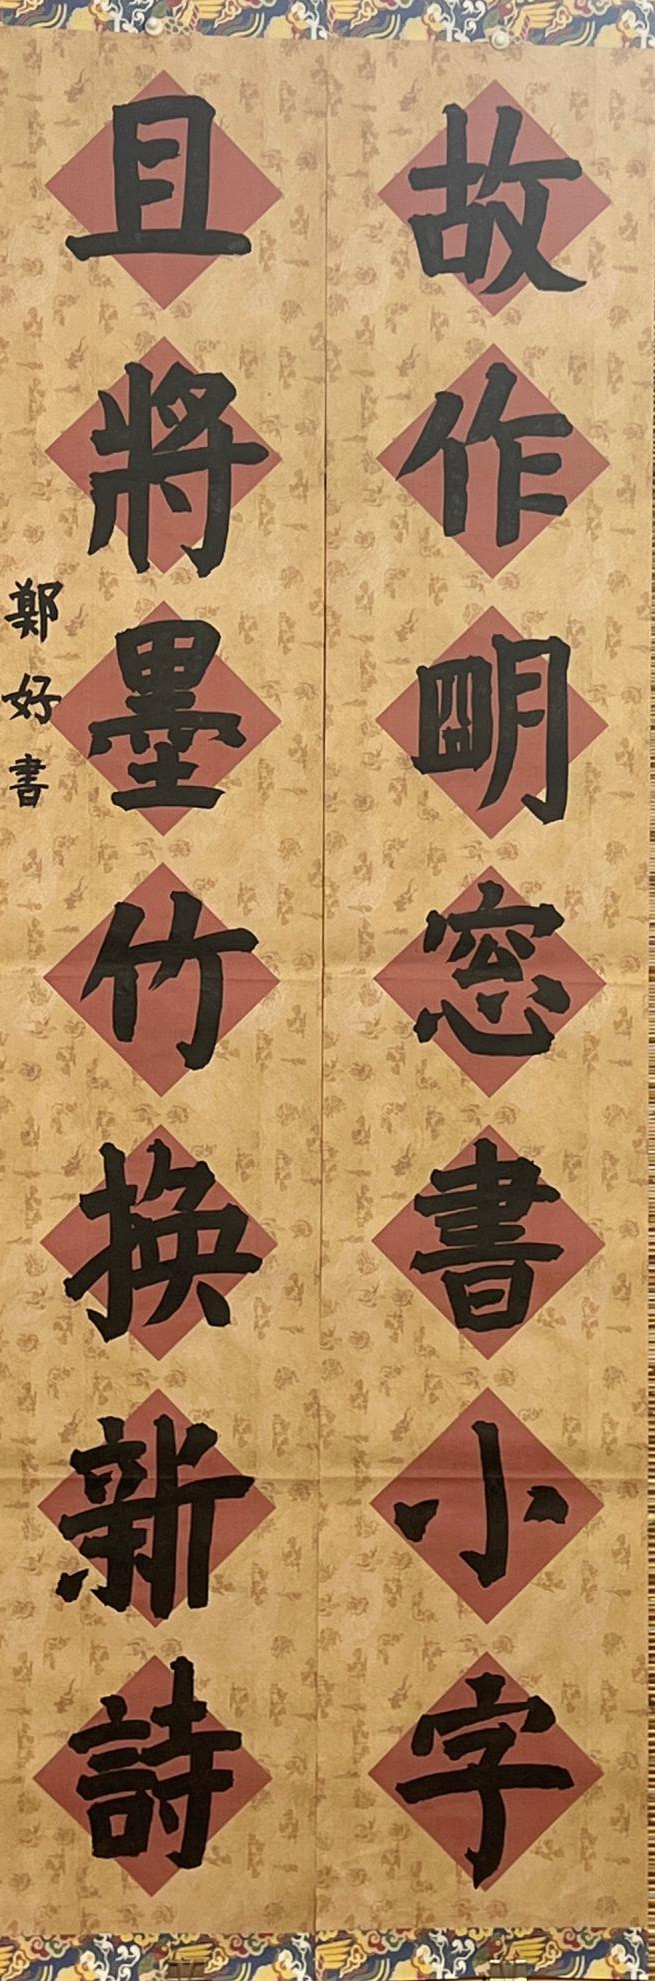 故作明窓書小字
且將墨竹換新詩
鄭好書